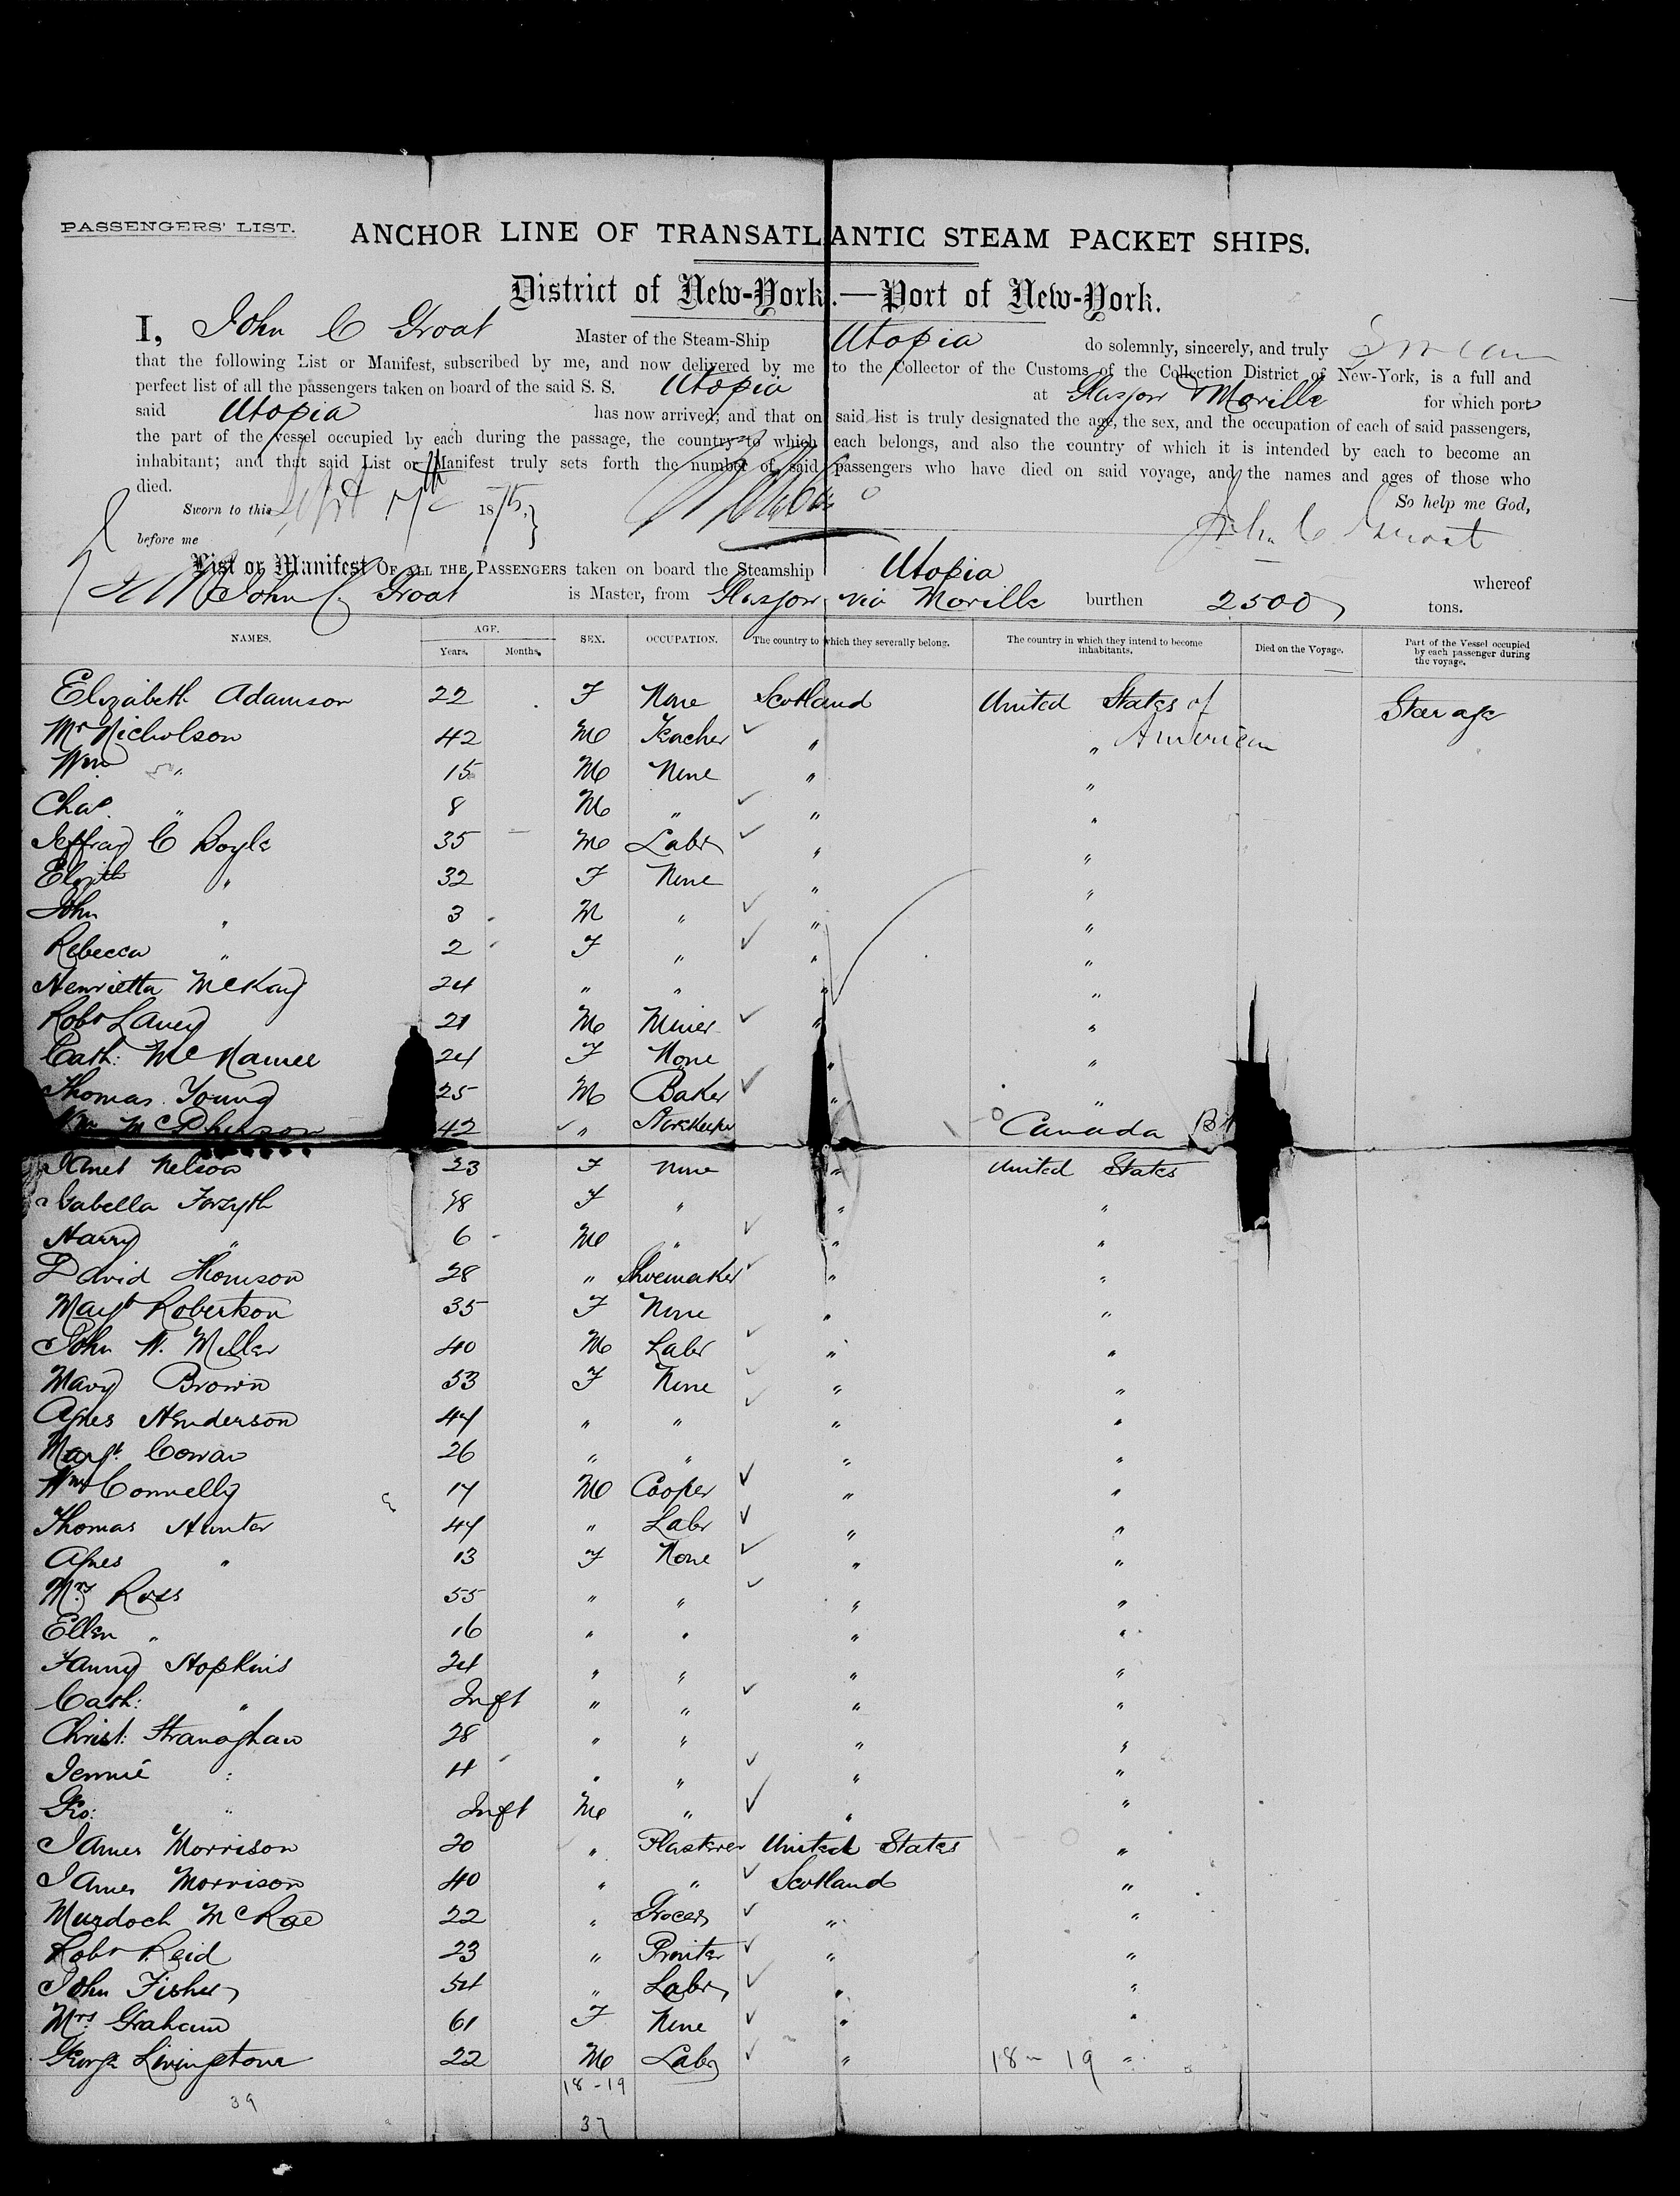 PASSENGERS' LIST.
ANCHOR LINE OF TRANSATLANTIC STEAM PACKET SHIPS.
District of New-York.—Port of New-York.
I, John C Groat Master of the Steam-Ship Utopia do solemnly, sincerely, and truly Swear
that the following List or Manifest, subscribed by me, and now delivered by me to the Collector of the Customs of the Collection District of New-York, is a full and
perfect list of all the passengers taken on board of the said S. S. Utopia at Glasgow & Moville for which port
said Utopia has now arrived; and that on said list is truly designated the age, the sex, and the occupation of each of said passengers,
the part of the vessel occupied by each during the passage, the country to which each belongs, and also the country of which it is intended by each to become an
inhabitant; and that said List or Manifest truly sets forth the number of said passengers who have died on said voyage, and the names and ages of those who
died.
So help me God,
Sworn to this 1875,
John C. Groat
before me
List or Manifest OF ALL THE PASSENGERS taken on board the Steamship Utopia whereof
John C. Groat is Master, from Glasgow via Moville burthen 2500 tons.
NAMES. AGE. Years. Months. SEX. OCCUPATION. The country to which they severally belong. The country in which they intend to become inhabitants. Died on the Voyage. Part of the Vessel occupied by each passenger during the voyage.
Elizabeth Adamson 22 F None Scotland United States of Steerage
Mr Nicholson 42 M Teacher " " American
Wm " 15 M None " "
Chas. " 8 M " " "
Jeffray C Boyle 35 M Labr " "
Elizth " 32 F None " "
John " 3 M " " "
Rebecca " 2 F " " "
Henrietta McKay 24 " " " "
Robt Lavery 21 M Miner " "
Cath: McNamee 24 F None " "
Thomas Young 25 M Baker " "
Wm McPherson 42 " Storekeeper Canada
Janet Nelson 23 F None " United States
Isabella Forsyth 28 F " " "
Harry " 6 M " " "
David Thomson 28 " Shoemaker " "
Margt Robertson 35 F None " "
John W. Miller 40 M Labr " "
Mary Brown 53 F None " "
Agnes Henderson 47 " " " "
Margt. Cowan 26 " " " "
Wm Connelly 17 M Cooper " "
Thomas Hunter 47 " Labr " "
Agnes " 13 F None " "
Mrs Ross 55 " " " "
Ellen " 16 " " " "
Fanny Hopkins 24 " " " "
Cath: " Inft " " " "
Christ: Stranaghan 28 " " " "
Jennie " 4 " " " "
Geo: " Inft M " " "
James Morrison 20 " Plasterer United States "
James Morrison 40 " " Scotland "
Murdoch McRae 22 " Grocer " "
Robt Reid 23 " Printer " "
John Fisher 54 " Labr " "
Mrs. Graham 61 F None " "
George Livingstone 22 M Labr " 18-19 "
18-19
39
37